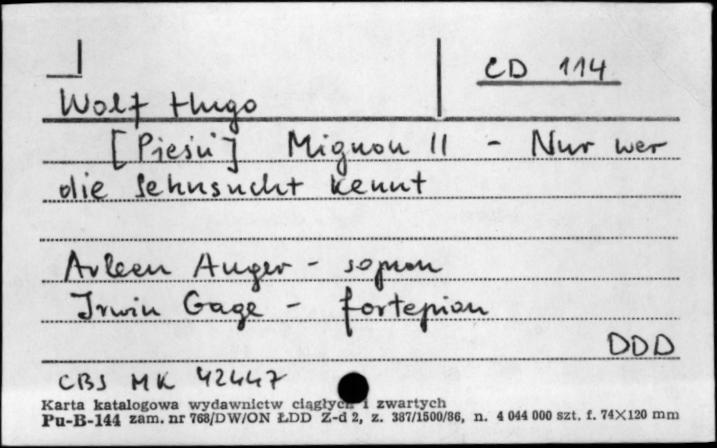 CD 114
Wolf Hugo
[Pieśń] Mignon II - Nur wer
die Sehnsucht kennt
Arleen Auger - sopran
Irwin Gage - fortepian
DDD
CBS MK 42447
Karta katalogowa wydawnictw ciągłych i zwartych
Pu-B-144 zam. nr 768/DW/ON ŁDD Z-d 2, z. 387/1500/86, n. 4 044 000 szt. f. 74×120 mm